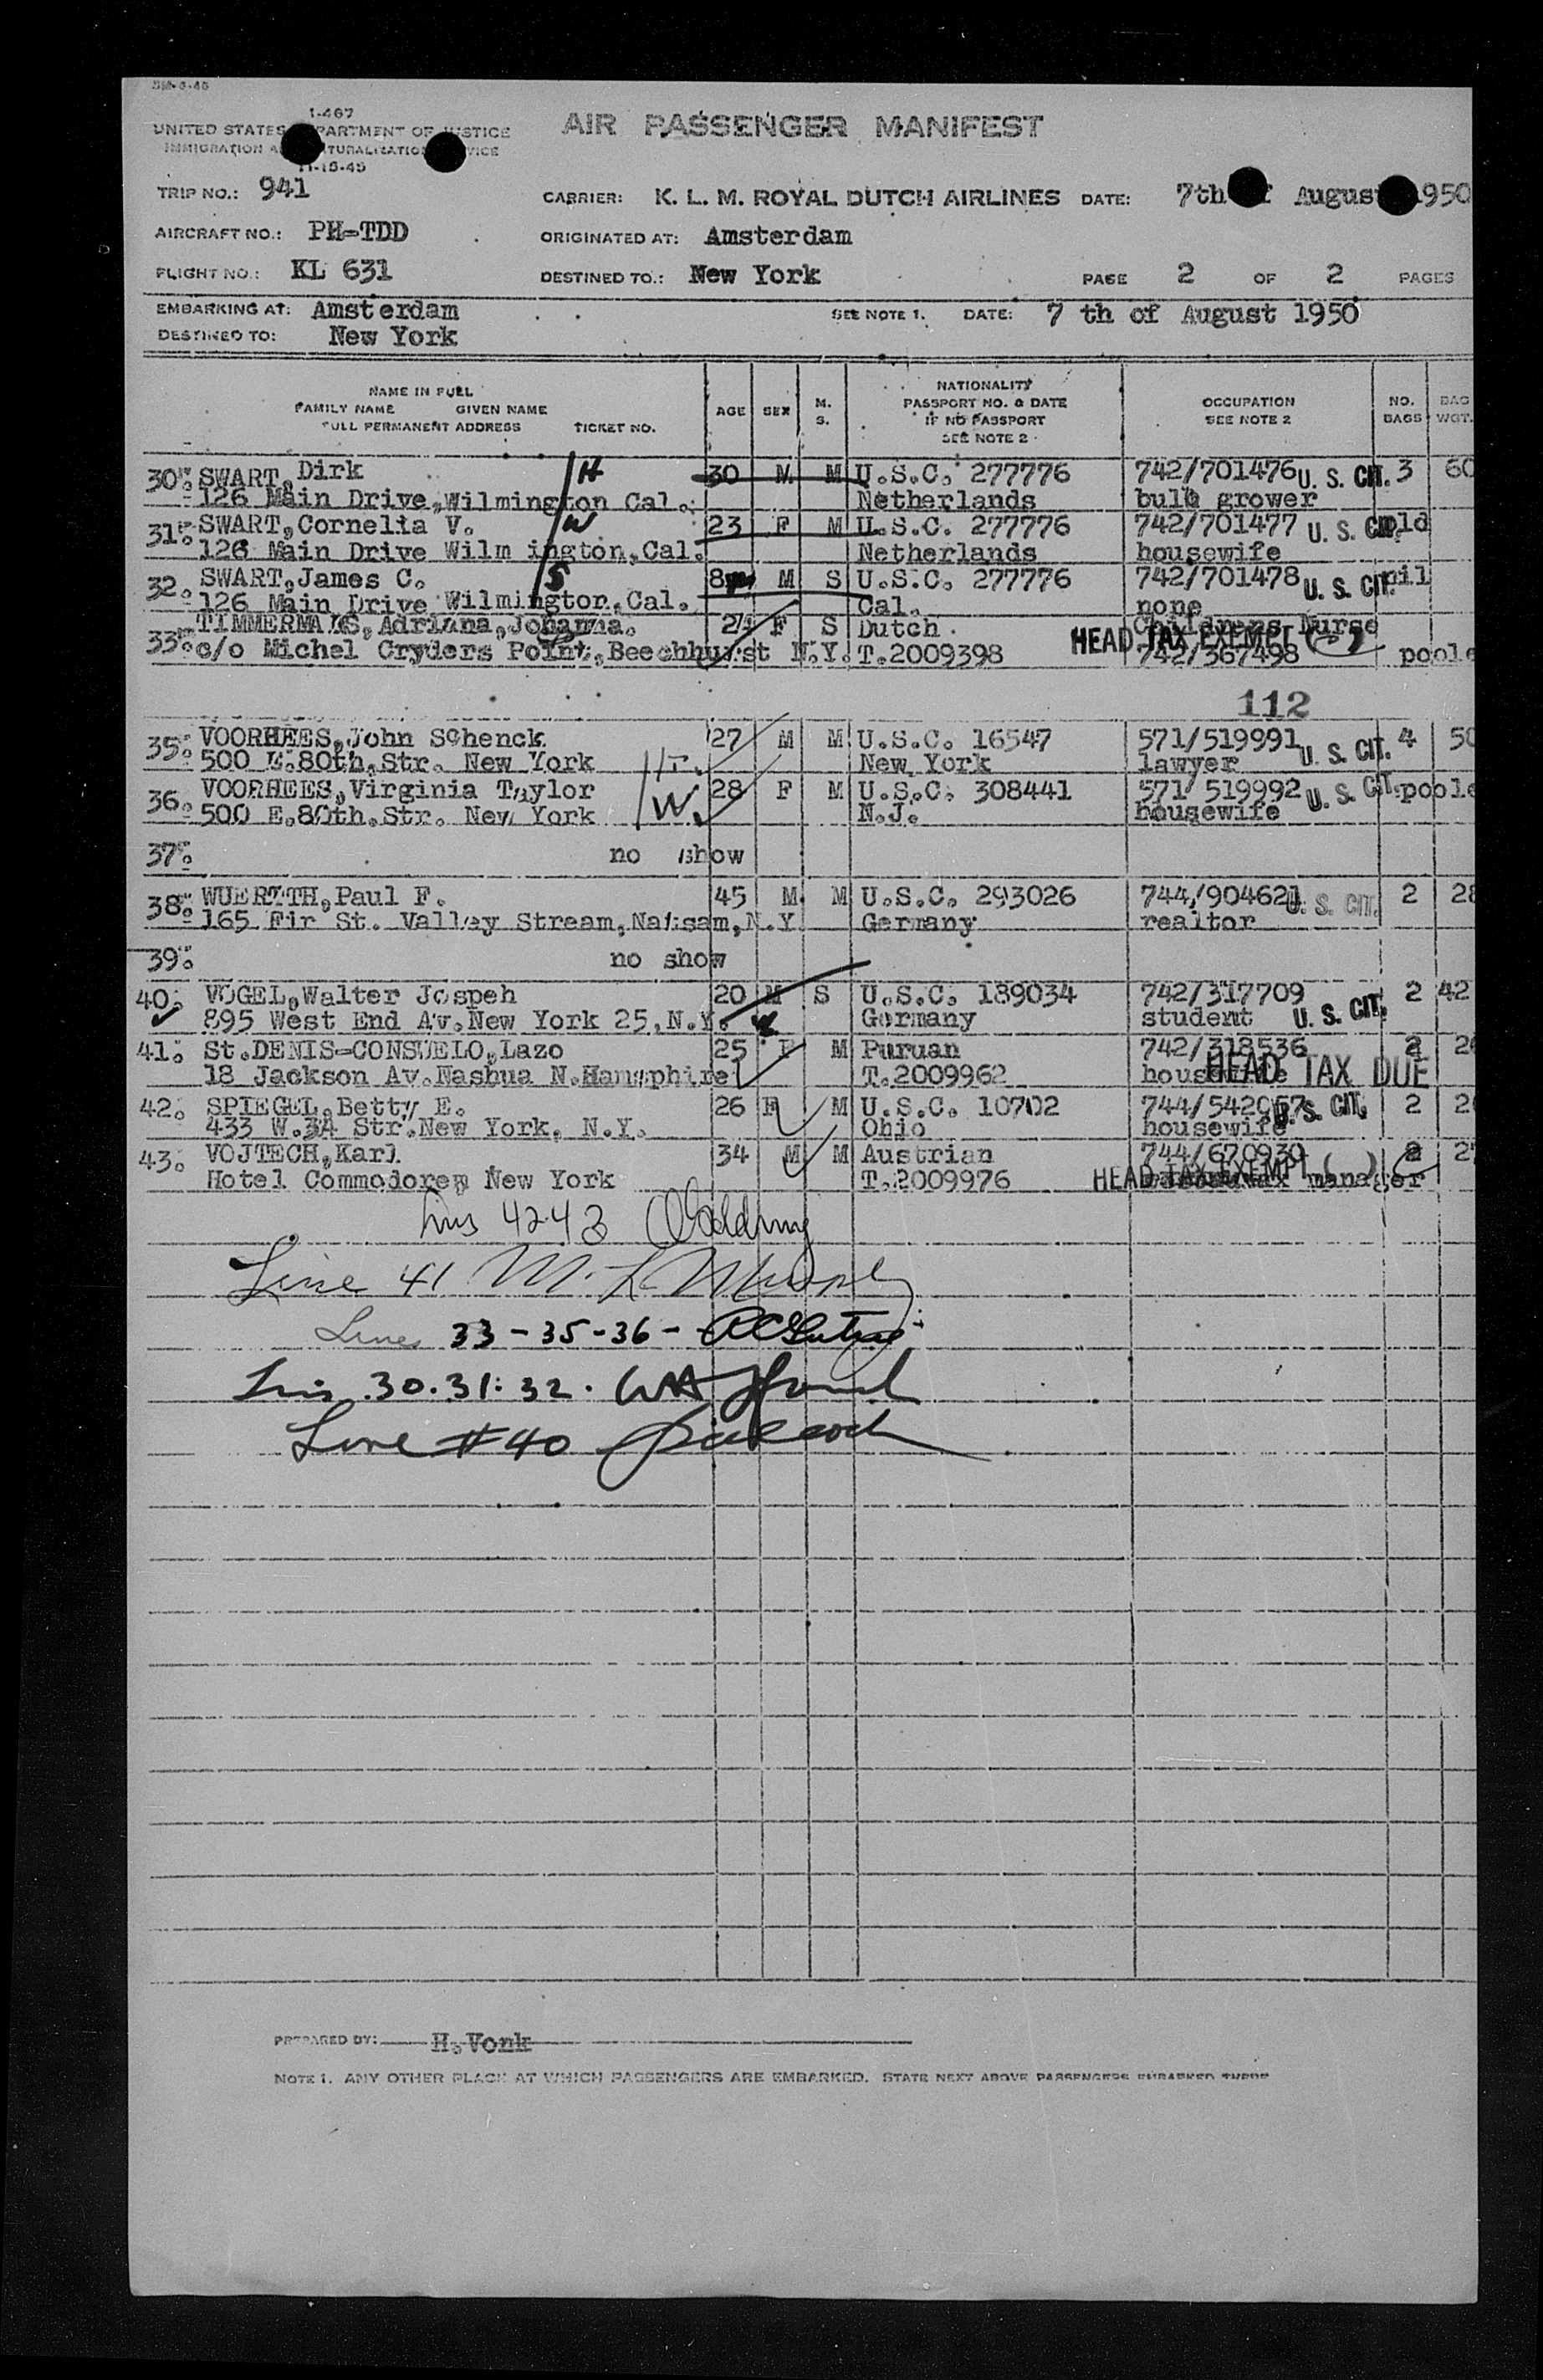 I-467
UNITED STATES PARTMENT OF JUSTICE
IMMIGRATION A TURALIZATIO VICE
11-15-45
AIR PASSENGER MANIFEST
TRIP NO.: 941 CARRIER: K. L. M. ROYAL DUTCH AIRLINES DATE: 7th August 1950
AIRCRAFT NO.: PH-TDD ORIGINATED AT: Amsterdam
FLIGHT NO.: KL 631 DESTINED TO.: New York PAGE 2 OF 2 PAGES
EMBARKING AT: Amsterdam SEE NOTE 1. DATE: 7 th of August 1950
DESTINED TO: New York
NAME IN FULL
FAMILY NAME GIVEN NAME
FULL PERMANENT ADDRESS TICKET NO.
AGE SEX M. S.
NATIONALITY
PASSPORT NO. & DATE
IF NO PASSPORT
SEE NOTE 2
OCCUPATION
SEE NOTE 2
NO. BAGS
BAG WGT.
30. SWART, Dirk H 30 M M U.S.C. 277776 742/701476 U. S. CIT. 3 60
126 Main Drive, Wilmington Cal. Netherlands bulb grower
31. SWART, Cornelia V. W 23 F M U.S.C. 277776 742/701477 U. S. CIT.
126 Main Drive Wilm ington, Cal. Netherlands housewife
32. SWART, James C. S 8 M S U.S.C. 277776 742/701478 U. S. CIT. nil
126 Main Drive Wilmington, Cal. Cal. none
33. TIMMERMANS, Adriana, Johanna. 24 F S Dutch Childrens Nurse
HEAD TAX EXEMPT
c/o Michel Cryders Point, Beechhurst N.Y. T.2009398 742/367498 poole
112
35. VOORHEES, John Schenck 27 M M U.S.C. 16547 571/519991 U. S. CIT. 4 50
500 E.80th.Str. New York H. New York lawyer
36. VOORHEES, Virginia Taylor 28 F M U.S.C. 308441 571/ 519992 U. S. CIT. poole
500 E.80th.Str. New York W. N.J. housewife
37. no show
38. WUERTTH, Paul F. 45 M M U.S.C. 293026 744/904621 U. S. CIT. 2 28
165 Fir St. Valley Stream, Nassam, N.Y. Germany realtor
39. no show
40. VOGEL, Walter Jospeh 20 M S U.S.C. 189034 742/317709 2 42
895 West End Av. New York 25, N.Y. Germany student U. S. CIT.
41. St.DENIS-CONSUELO, Lazo 25 F M Puruan 742/318536 2 2
18 Jackson Av. Nashua N.Hamsphire T.2009962 housewife HEAD TAX DUE
42. SPIEGEL, Betty E. 26 F M U.S.C. 10702 744/542067 U. S. CIT. 2 2
433 W.34 Str. New York, N.Y. Ohio housewife
43. VOJTECH, Karl 34 M M Austrian 744/670930 2 2
Hotel Commodore, New York T.2009976 HEAD TAX EXEMPT manager
42-43
Line 41 M. L. Murphy
Lines 33-35-36-
30.31:32.
Line #40
PREPARED BY: H. Vonk
NOTE 1. ANY OTHER PLACE AT WHICH PASSENGERS ARE EMBARKED. STATE NEXT ABOVE PASSENGERS EMBARKED THERE